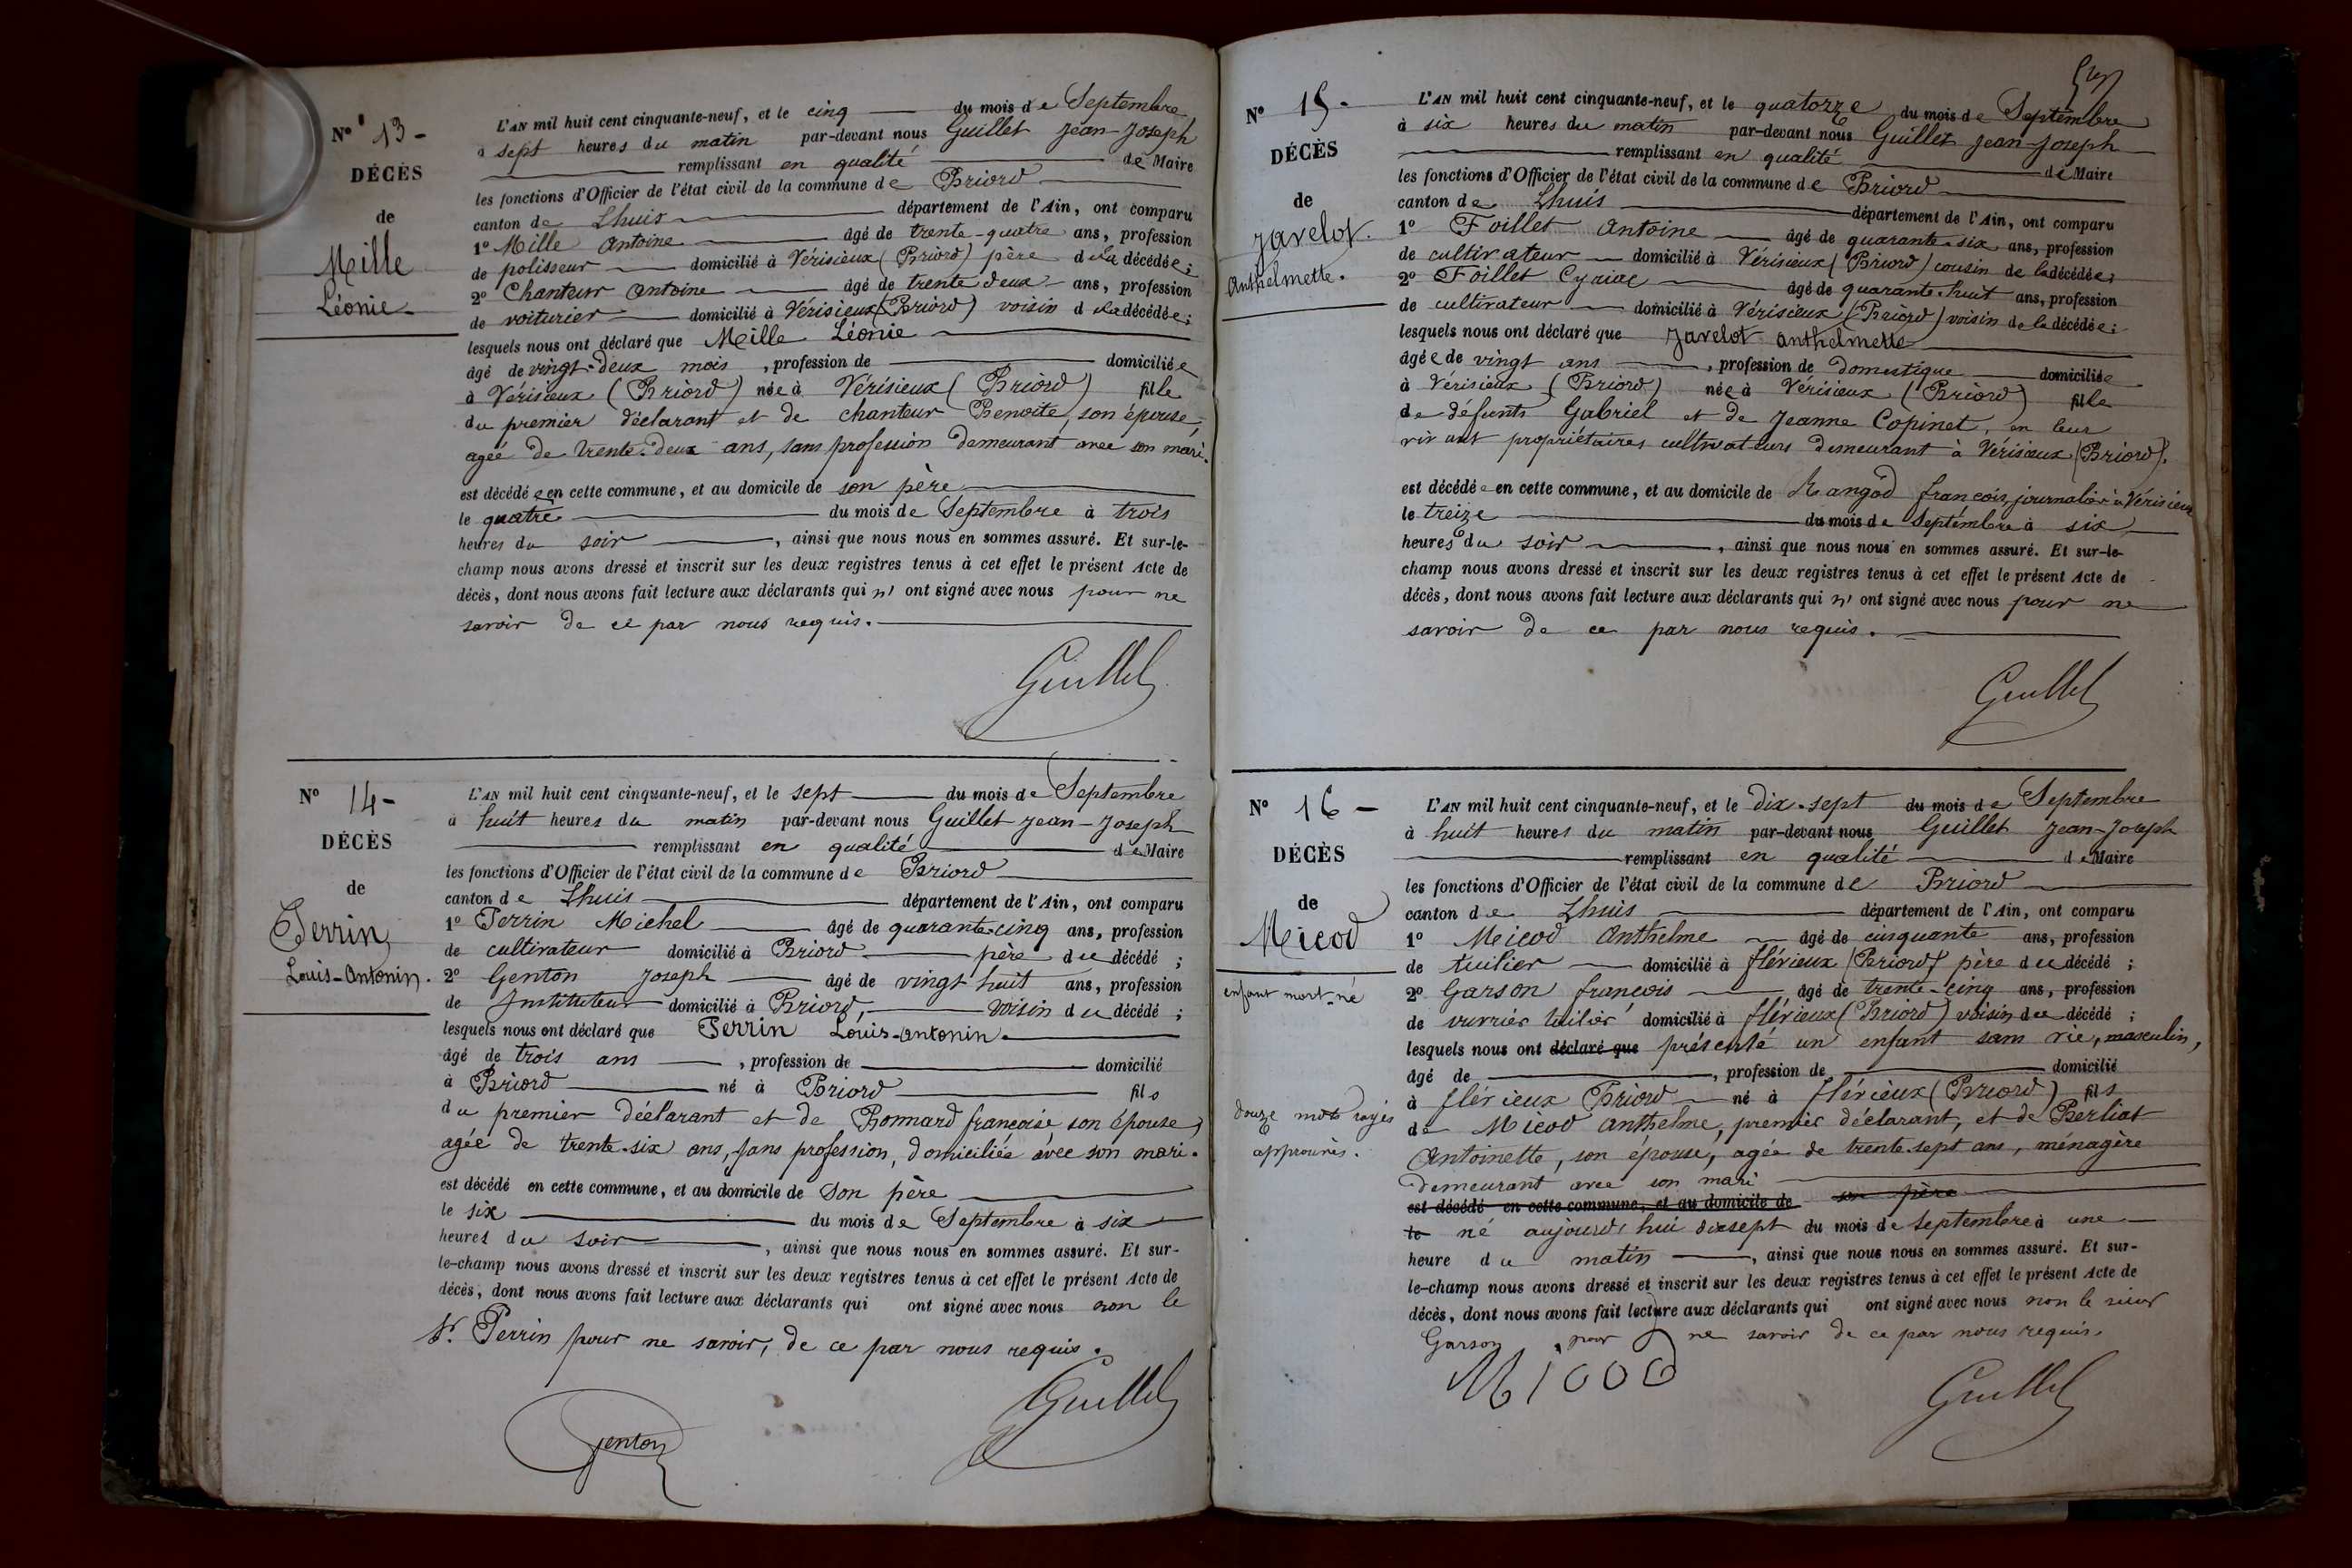 N° 13 -
DÉCÈS
de
Mille
Léonie -
L'AN mil huit cent cinquante-neuf, et le cinq du mois de Septembre
à sept heures du matin par-devant nous Guillet Jean-Joseph
remplissant en qualité de Maire
les fonctions d'Officier de l'état civil de la commune de Briord
canton de Lhuis département de l'Ain, ont comparu
1° Mille Antoine âgé de trente-quatre ans, profession
de polisseur domicilié à Vérisieux (Briord) père de la décédée;
2° Chanteur Antoine âgé de trente deux ans, profession
de voiturier domicilié à Vérisieux (Briord) voisin de la décédée;
lesquels nous ont déclaré que Mille Léonie
âgé de vingt-deux mois, profession de domiciliée
à Vérisieux (Briord) née à Vérisieux (Briord) fille
du premier déclarant et de chanteur Benoite, son épouse,
agée de trente-deux ans, sans profession demeurant avec son mari.
est décédée en cette commune, et au domicile de son père
le quatre du mois de Septembre à trois
heures du soir, ainsi que nous nous en sommes assuré. Et sur-le-
champ nous avons dressé et inscrit sur les deux registres tenus à cet effet le présent Acte de
décès, dont nous avons fait lecture aux déclarants qui n' ont signé avec nous pour ne
savoir de ce par nous requis.
Guillet
N° 14 -
DÉCÈS
de
Perrin
Louis-Antonin.
L'AN mil huit cent cinquante-neuf, et le sept du mois de Septembre
à huit heures du matin par-devant nous Guillet Jean-Joseph
remplissant en qualité de Maire
les fonctions d'Officier de l'état civil de la commune de Briord
canton de Lhuis département de l'Ain, ont comparu
1° Perrin Michel âgé de quarante-cinq ans, profession
de cultivateur domicilié à Briord père du décédé;
2° Genton Joseph âgé de vingt huit ans, profession
de Instituteur domicilié à Briord, voisin du décédé;
lesquels nous ont déclaré que Perrin Louis-Antonin.
âgé de trois ans, profession de domicilié
à Briord né à Briord fils
du premier déclarant et de Bonnard françoise, son épouse,
agée de trente-six ans, sans profession, domiciliée avec son mari.
est décédé en cette commune, et au domicile de son père
le six du mois de Septembre à six
heures du soir, ainsi que nous nous en sommes assuré. Et sur-
le-champ nous avons dressé et inscrit sur les deux registres tenus à cet effet le présent Acte de
décès, dont nous avons fait lecture aux déclarants qui ont signé avec nous non le
Sr. Perrin pour ne savoir, de ce par nous requis.
Genton Guillet
N° 15 -
DÉCÈS
de
Javelot.
Anthelmette.
L'AN mil huit cent cinquante-neuf, et le quatorze du mois de Septembre
à six heures du matin par-devant nous Guillet Jean-Joseph
remplissant en qualité de Maire
les fonctions d'Officier de l'état civil de la commune de Briord
canton de Lhuis département de l'Ain, ont comparu
1° Foillet Antoine âgé de quarante-six ans, profession
de cultivateur domicilié à Vérisieux (Briord) cousin de la décédée;
2° Foillet Cyriac âgé de quarante-huit ans, profession
de cultivateur domicilié à Vérisieux (Briord) voisin de la décédée;
lesquels nous ont déclaré que Javelot Anthelmette
âgée de vingt ans, profession de Domestique domiciliée
à Vérisieux (Briord) née à Vérisieux (Briord) fille
de défunts Gabriel et de Jeanne Copinet, en leur
vivant propriétaires cultivateurs demeurant à Vérisieux (Briord).
est décédée en cette commune, et au domicile de Rangod françois, journalier à Vérisieux
le treize du mois de Septembre à six
heures du soir, ainsi que nous nous en sommes assuré. Et sur-le-
champ nous avons dressé et inscrit sur les deux registres tenus à cet effet le présent Acte de
décès, dont nous avons fait lecture aux déclarants qui n' ont signé avec nous pour ne
savoir de ce par nous requis.
Guillet
N° 16 -
DÉCÈS
de
Micod
enfant mort-né
douze mots rayés
approuvés.
L'AN mil huit cent cinquante-neuf, et le dix-sept du mois de Septembre
à huit heures du matin par-devant nous Guillet Jean-Joseph
remplissant en qualité de Maire
les fonctions d'Officier de l'état civil de la commune de Briord
canton de Lhuis département de l'Ain, ont comparu
1° Micod Anthelme âgé de cinquante ans, profession
de tuilier domicilié à flérieux (Briord) père du décédé;
2° Garson françois âgé de trente-cinq ans, profession
de ouvrier tuilier domicilié à flérieux (Briord) voisin du décédé;
lesquels nous ont déclaré que présenté un enfant sans vie, masculin,
âgé de, profession de domicilié
à flérieux Briord né à flérieux (Briord) fils
de Micod Anthelme, premier déclarant, et de Berliat
Antoinette, son épouse, agée de trente-sept ans, ménagère
demeurant avec son mari
est décédé en cette commune, et au domicile de son père
le né aujourd'hui dix sept du mois de Septembre à une
heure du matin, ainsi que nous nous en sommes assuré. Et sur-
le-champ nous avons dressé et inscrit sur les deux registres tenus à cet effet le présent Acte de
décès, dont nous avons fait lecture aux déclarants qui ont signé avec nous non le sieur
Garson pour ne savoir de ce par nous requis.
Micod Guillet